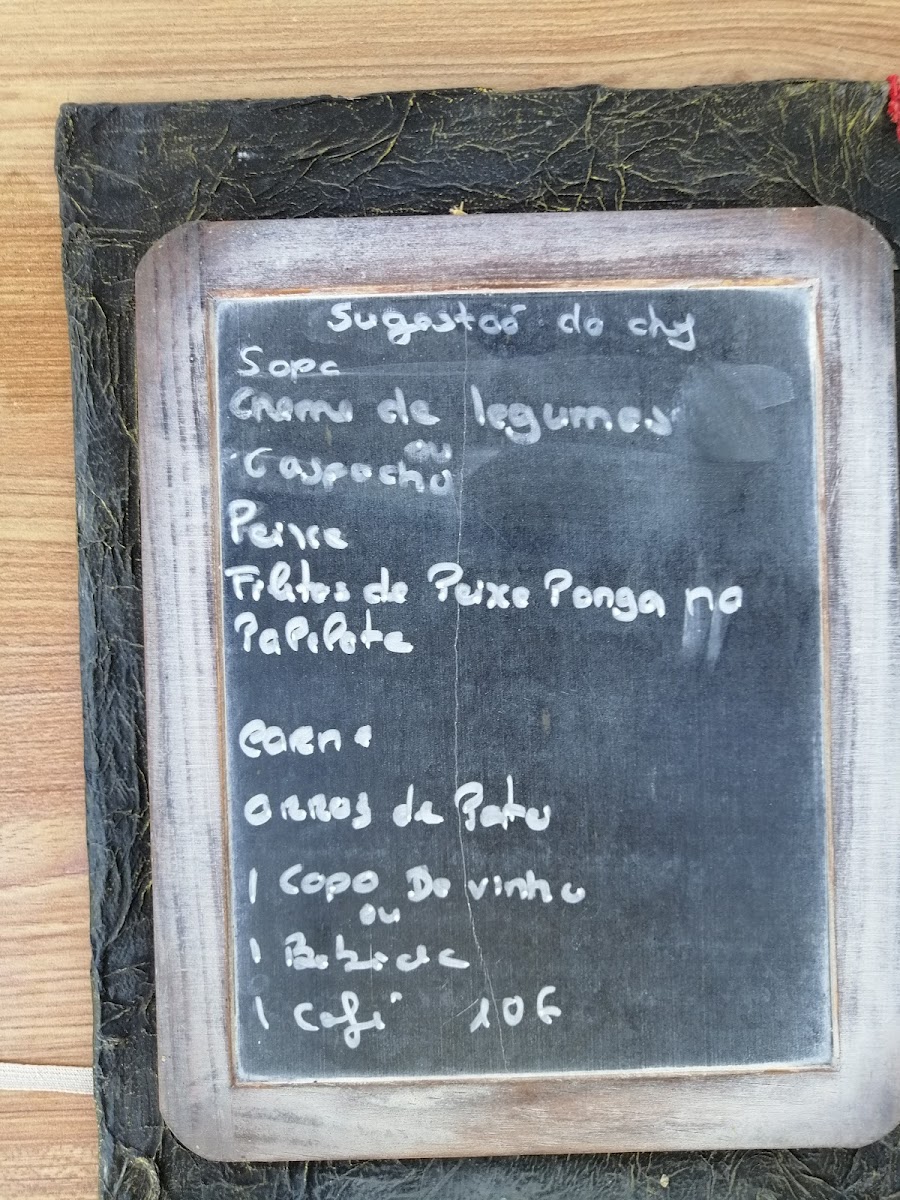 Sugestaõ do chef
Sopa
Creme de legumes
ou
Gaspacho
Peixe
Filetes de Peixe Ponga no
PaPilote
Carne
Arros de Pato
1 Copo De vinho
ou
1 Bebida
1 Café 10€